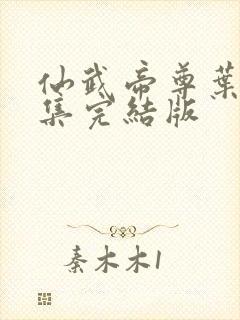 仙武帝尊葉
集完結版
秦木木1